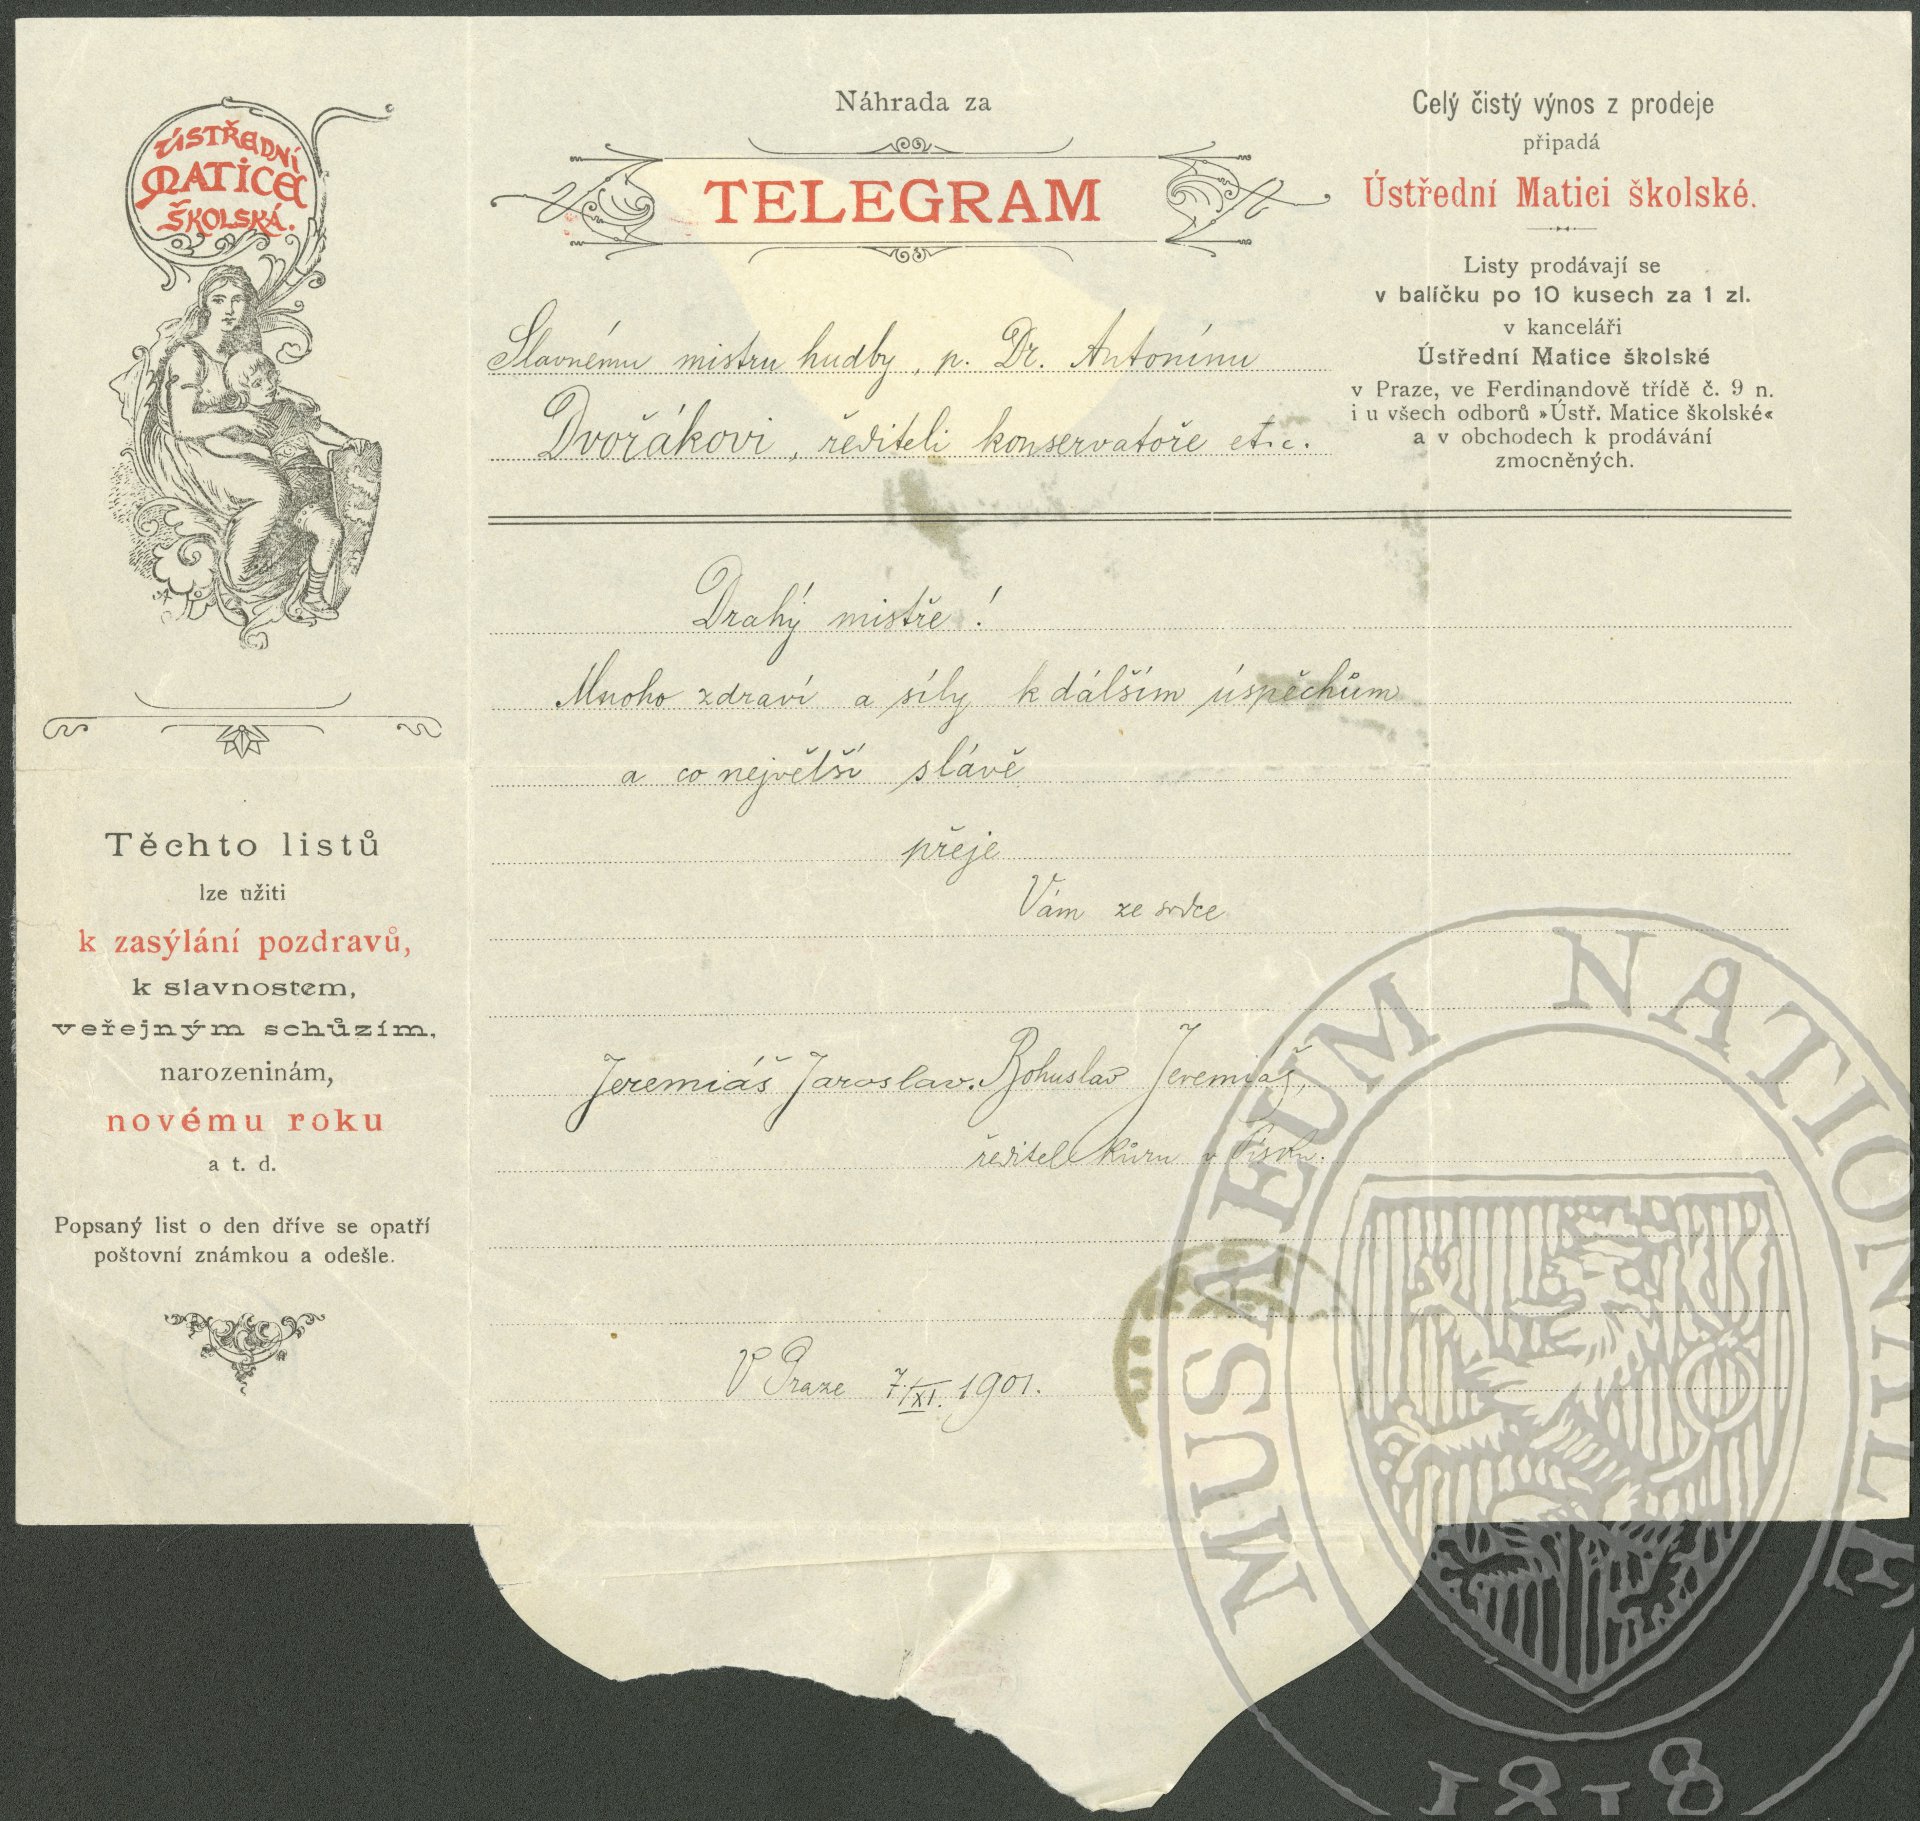 ÚSTŘEDNÍ
MATICE
ŠKOLSKÁ.
Těchto listů
lze užiti
k zasýlání pozdravů,
k slavnostem,
veřejným schůzím,
narozeninám,
novému roku
a t. d.
Popsaný list o den dříve se opatří
poštovní známkou a odešle.
Náhrada za
TELEGRAM
Slavnému mistru hudby, p. Dr. Antonínu
Dvořákovi, řediteli konservatoře etc.
Celý čistý výnos z prodeje
připadá
Ústřední Matici školské.
Listy prodávají se
v balíčku po 10 kusech za 1 zl.
v kanceláři
Ústřední Matice školské
v Praze, ve Ferdinandově třídě č. 9 n.
i u všech odborů »Ústř. Matice školské«
a v obchodech k prodávání
zmocněných.
Drahý mistře!
Mnoho zdraví a síly k dálším úspěchům
a co největší slávě
přeje
Vám ze srdce
Jeremiáš Jaroslav. Bohuslav Jeremiáš,
ředitel kůru v Písku.
V Praze 7./XI. 1901.
MUSAEUM NATIONALE
1818